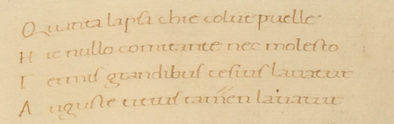 Quanta lapsi chie colut puelle
Hic nullo comitante nec molesto
Termis grandibus cesius lauatur
Auguste uetus tamen lauatur